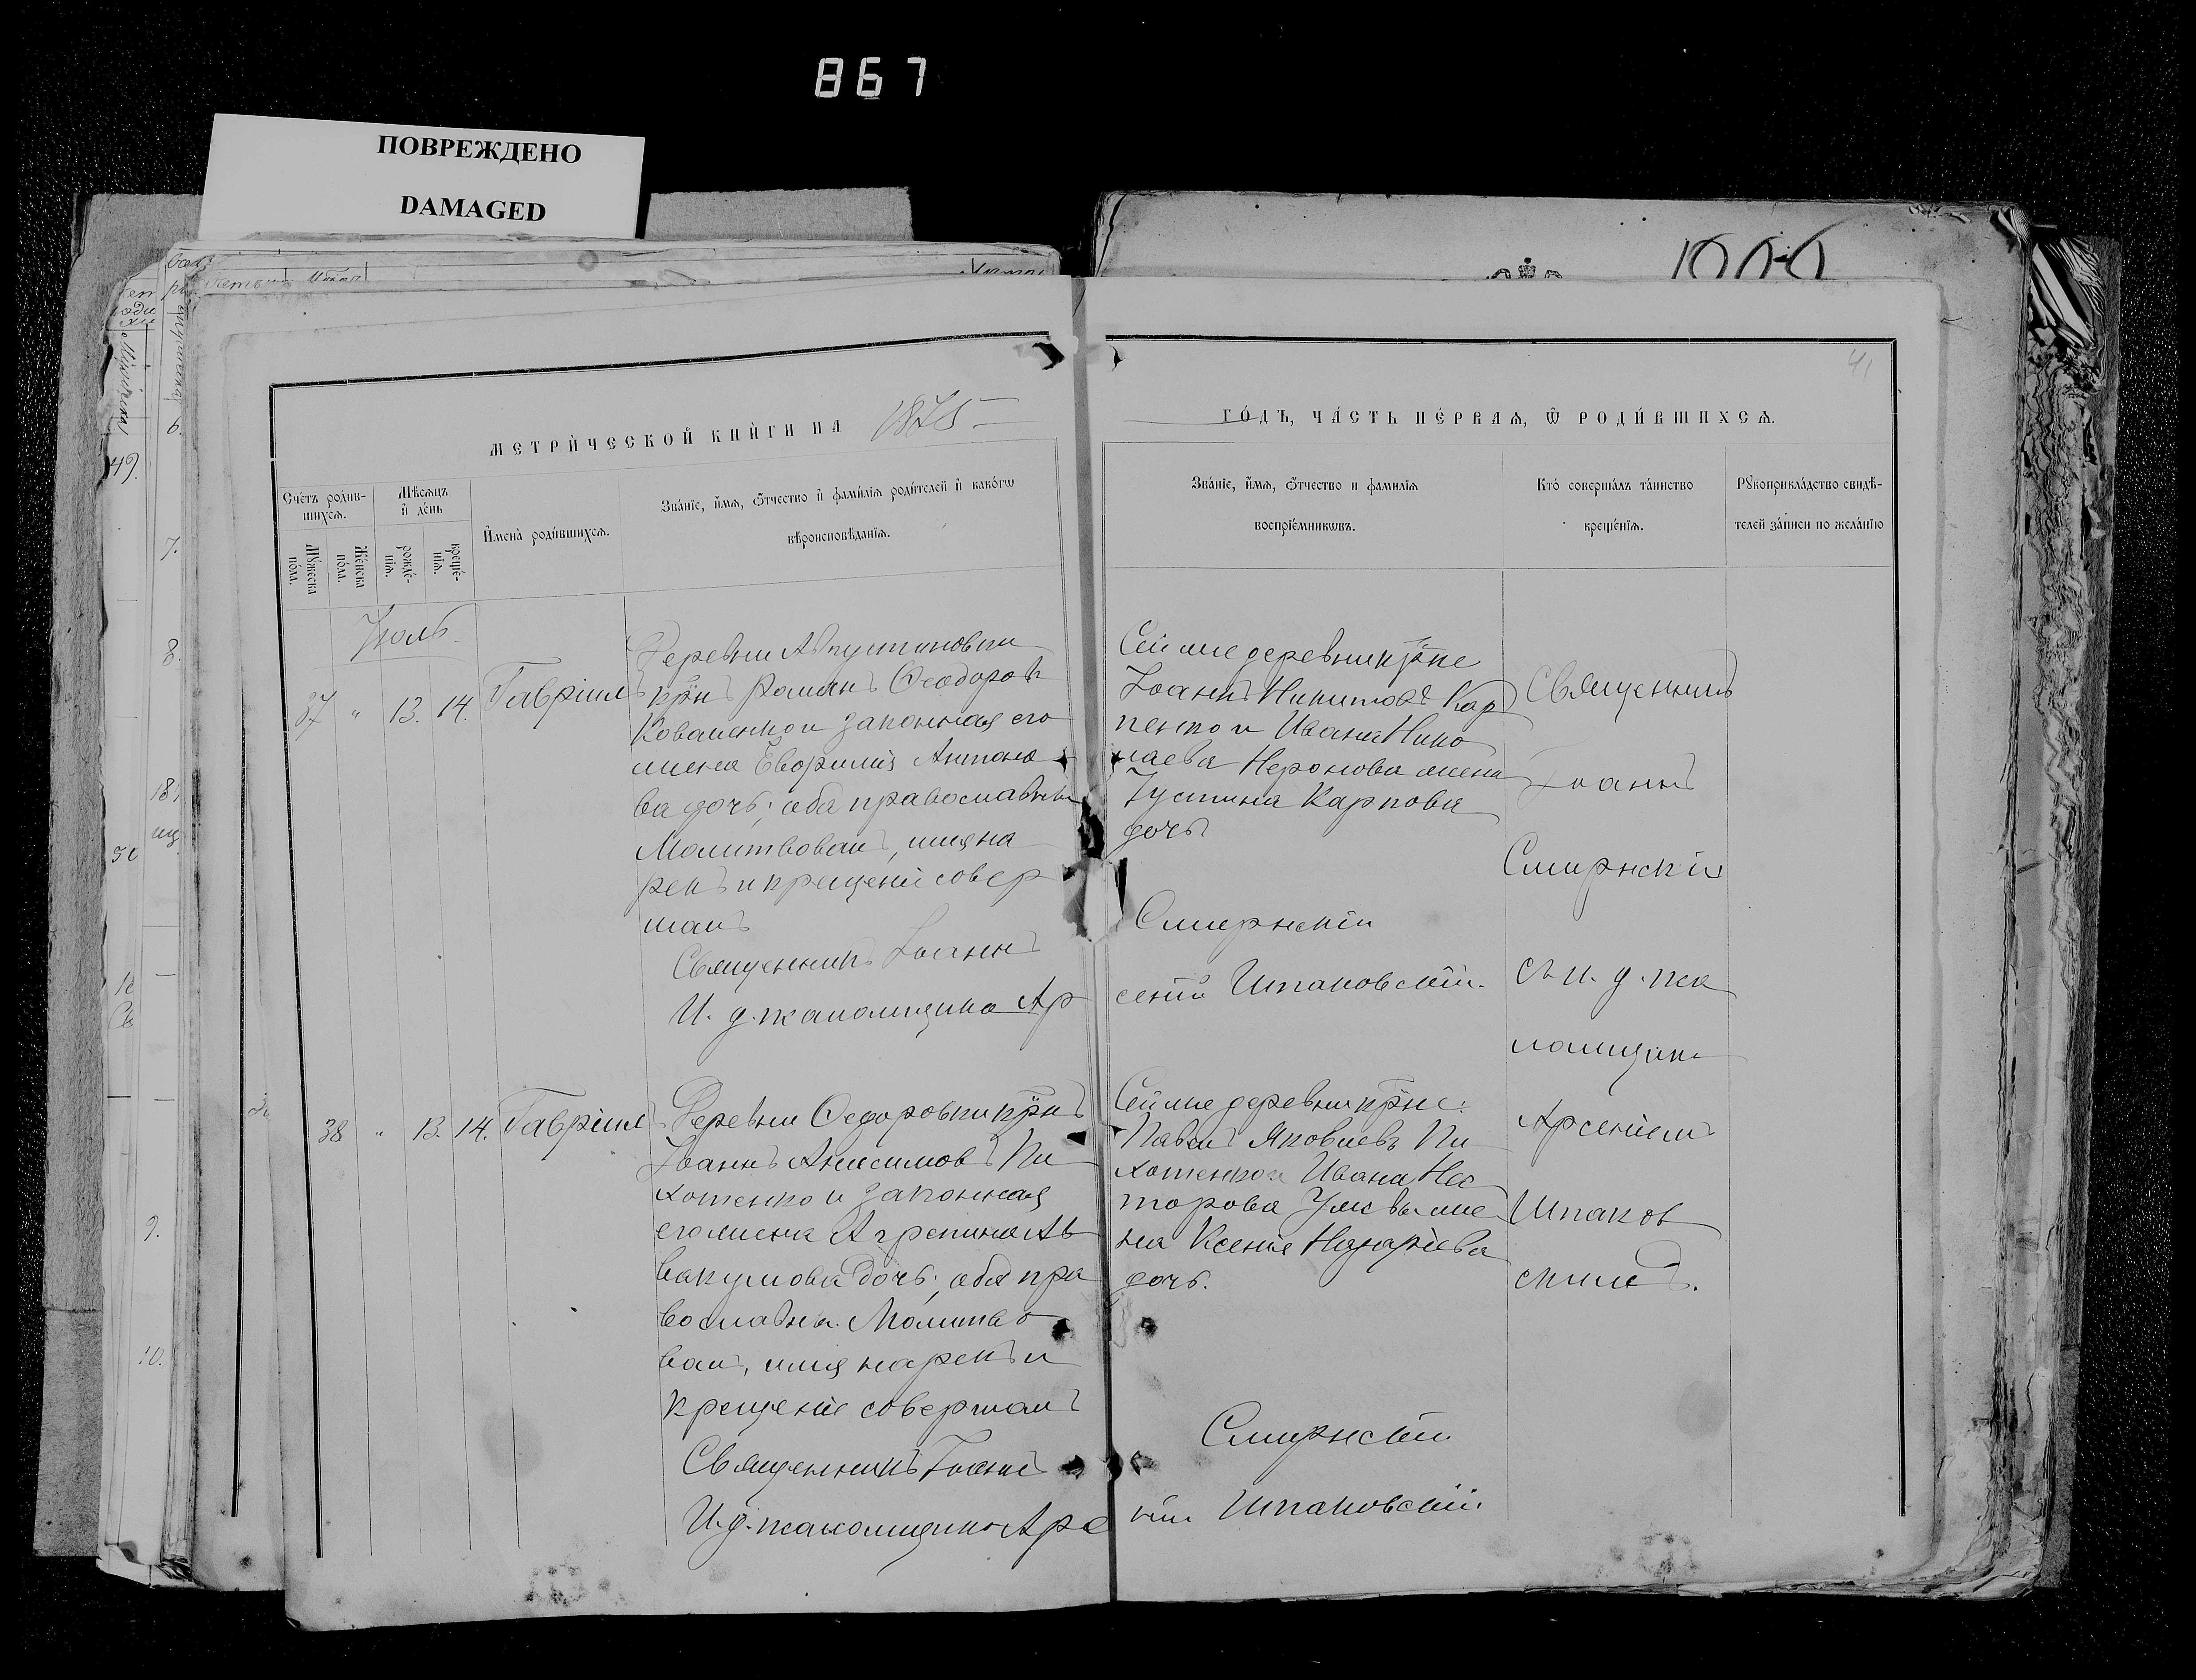 867
ПОВРЕЖДЕНО
DAMAGED
41
МЕТРИ́ЧЕСКОЙ КНИ́ГИ НА 1875
ГО́ДЪ, ЧА́СТЬ ПЕ́РВАѦ, Ѿ РОДИ́ВШИХСѦ.
Сче́тъ роди́в-
шихсѧ.
Мꙋ́жеска
по́ла.
Же́нска
по́ла.
Мѣ́сѧцъ
и҆ де́нь
рожде́-
нїѧ.
креще́-
нїѧ.
И҆мена̀ роди́вшихсѧ.
Зва́нїе, и҆́мѧ, ѻ҆́тчество и҆ фами́лїѧ роди́телей и҆ како́гѡ
вѣроисповѣ́данїѧ.
Зва́нїе, и҆́мѧ, ѻ҆́тчество и фамилїѧ
воспрїе́мникѡвъ.
Кто̀ соверша́лъ та́инство
креще́нїѧ.
Рꙋкоприкла́дство свидѣ́-
телей за́писи по жела́нїю
Іюль
37 " 13. 14. Гавріилъ
Деревни Августиновки
крн Романъ Ѳеодоровъ
Коваленко и законная его
жена Евфимія Антоно
ва дочь; оба православны
Молитвовалъ, имя на
рекъ и крещеніе совер
шалъ
Священникъ Іоаннъ
Смирнскій
И. д. псаломщика Ар
сеній Шпаковскій.
Сей же деревни крне
Іоаннъ Никитовъ Кар
пенко и Ивана Нико
лаева Неронова жена
Іустина Карпова
дочь
Священникъ
Іоаннъ
Смирнскій
съ и. д. пса
ломщика
Арсеніемъ
Шпаков
скимъ.
38 " 13. 14. Гавріилъ
Деревни Ѳедоровки крнъ
Іоаннъ Анисимовъ Пи
хотенко и законная
его жена Агрепина Ав
вакумова дочь; оба пра
вославны. Молитво
валъ, имя нарекъ и
крещеніе совершалъ
Священникъ Іоаннъ
Смирнскій
И. д. псаломщика Арсе
ній Шпаковскій.
Сей же деревни крне:
Павелъ Яковлевъ Пи
хотенко и Ивана Нес
торова жe
на Ксенія Назаріева
дочь.
6.
7.
8.
9.
10.
49.